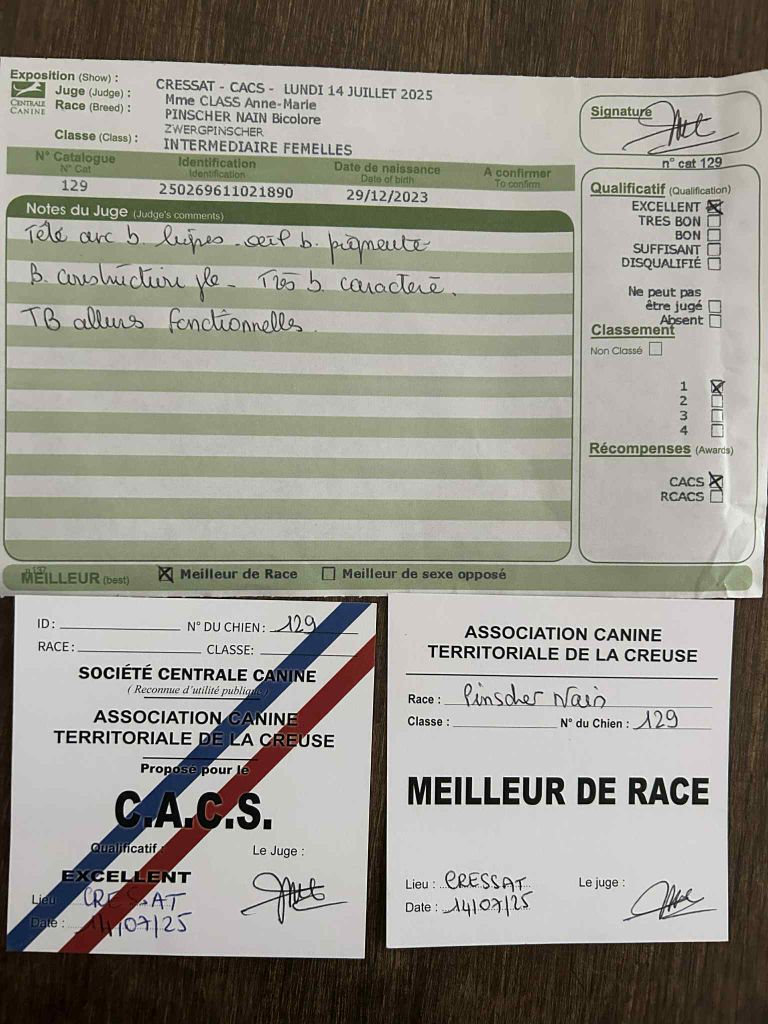 Exposition (Show) : CRESSAT - CACS - LUNDI 14 JUILLET 2025
Juge (Judge) : Mme CLASS Anne-Marie
Race (Breed) : PINSCHER NAIN Bicolore
ZWERGPINSCHER
Classe (Class) : INTERMEDIAIRE FEMELLES
CENTRALE
CANINE
N° Catalogue Identification Date de naissance A confirmer
N° Cat Identification Date of birth To confirm
129 250269611021890 29/12/2023
Notes du Juge (Judge's comments)
Tête avc b. lignes - oeil b. pigmenté
B. construction - Très b. caractère.
TB allures fonctionnelles.
p.137
MEILLEUR (best) Meilleur de Race Meilleur de sexe opposé
Signature
n° cat 129
Qualificatif (Qualification)
EXCELLENT
TRES BON
BON
SUFFISANT
DISQUALIFIÉ
Ne peut pas
être jugé
Absent
Classement
Non Classé
1
2
3
4
Récompenses (Awards)
CACS
RCACS
ID: N° DU CHIEN: 129
RACE: CLASSE:
SOCIÉTÉ CENTRALE CANINE
( Reconnue d'utilité publique )
ASSOCIATION CANINE
TERRITORIALE DE LA CREUSE
Proposé pour le
C.A.C.S.
Qualificatif : Le Juge :
EXCELLENT
Lieu : CRESSAT
Date : 14/07/25
ASSOCIATION CANINE
TERRITORIALE DE LA CREUSE
Race : Pinscher Nain
Classe : N° du Chien : 129
MEILLEUR DE RACE
Lieu : CRESSAT Le juge :
Date : 14/07/25